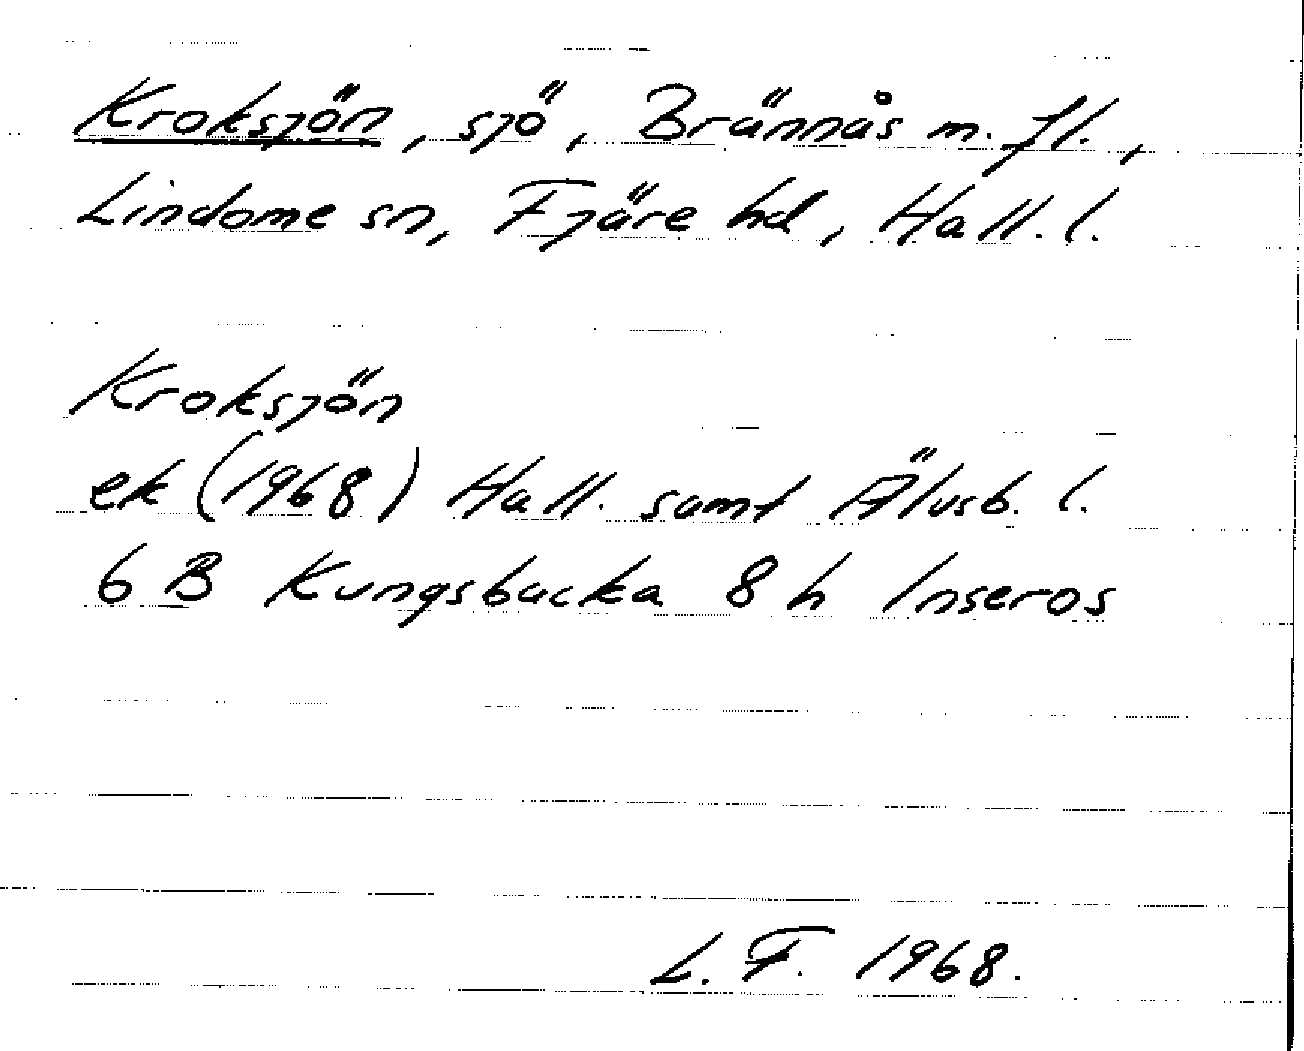 Kroksjön, sjö, Brännås m. fl.,
Lindome sn, Fjäre hd, Hall. l.
Kroksjön
ek (1968) Hall. samt Älvsb. l.
6 B Kungsbacka 8 h Inseros
L. F. 1968.